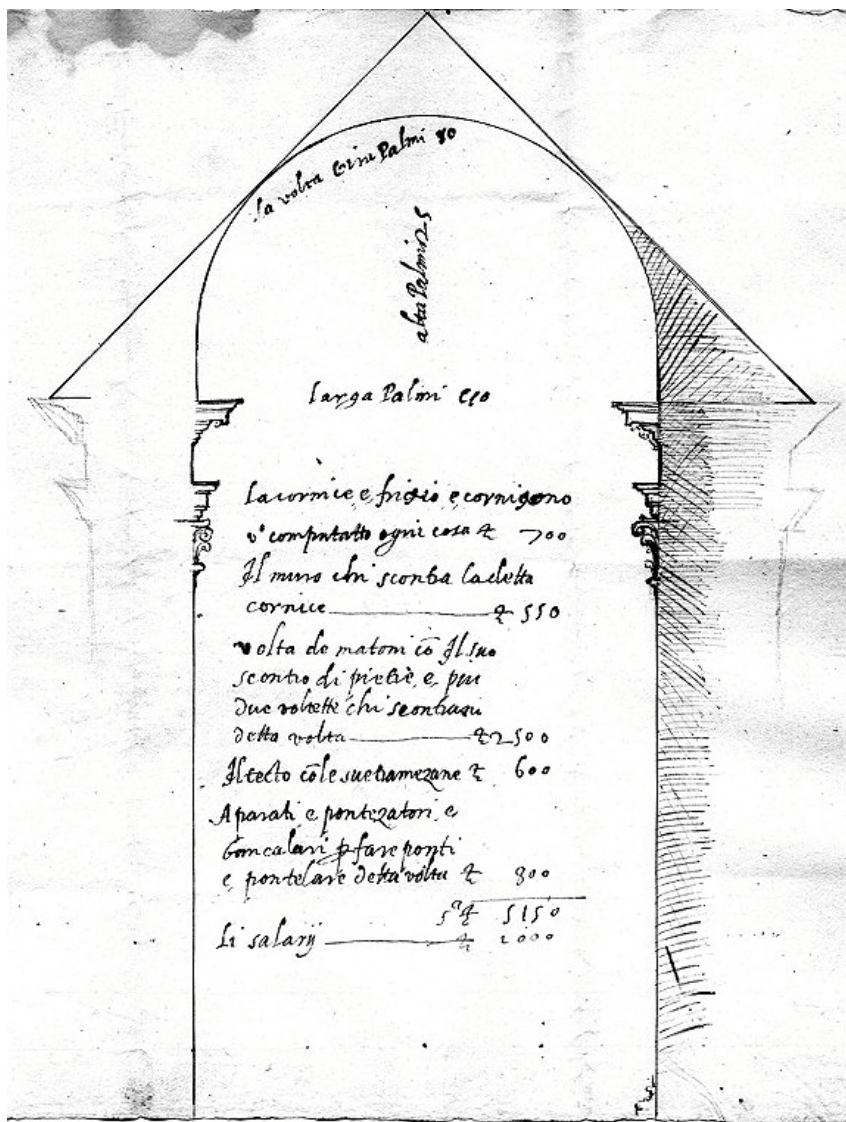 la volta Gira Palmi 80
alta Palmi 25
larga Palmi
la cornice e frigio e cornigono
v° computatto ogni cosa £ 700
Il muro chi sconba la detta
cornice £ 550
volta de matoni cō Il suo
scontro di pietre, e piu
due voltette chi sconbanu
detta volta £ 2500
Il tecto cō le sue tramezane £ 600
Aparati e pontezatori e
bancalari ꝑ fare ponti
e pontelare detta volta £ 800
sª £ 5150
li salarij £ 1000